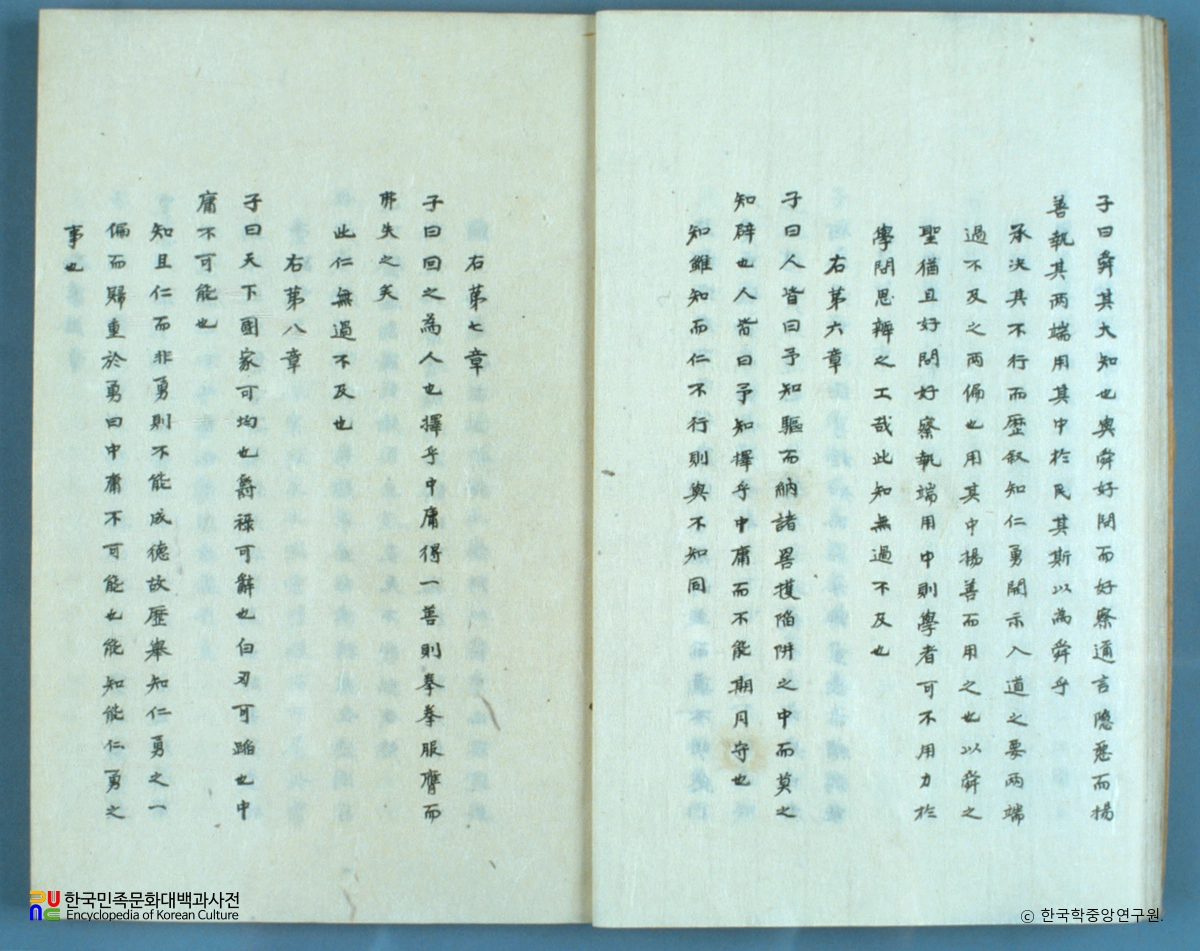 子曰舜其大知也與舜好問而好察邇言隱惡而揚
善執其兩端用其中於民其斯以為舜乎
承決其不行而歷叙知仁勇開示入道之要兩端
過不及之兩偏也用其中揚善而用之也以舜之
聖猶且好問好察執端用中則學者可不用力於
學問思辨之工哉此知無過不及也
右第六章
子曰人皆曰予知驅而納諸罟擭陷阱之中而莫之
知辟也人皆曰予知擇乎中庸而不能期月守也
知雖知而仁不行則與不知同
右第七章
子曰回之為人也擇乎中庸得一善則拳拳服膺而
弗失之矣
此仁無過不及也
右第八章
子曰天下國家可均也爵祿可辭也白刃可蹈也中
庸不可能也
知且仁而非勇則不能成德故歷舉知仁勇之一
偏而歸重於勇曰中庸不可能也能知能仁勇之
事也
한국민족문화대백과사전
Encyclopedia of Korean Culture
ⓒ 한국학중앙연구원.